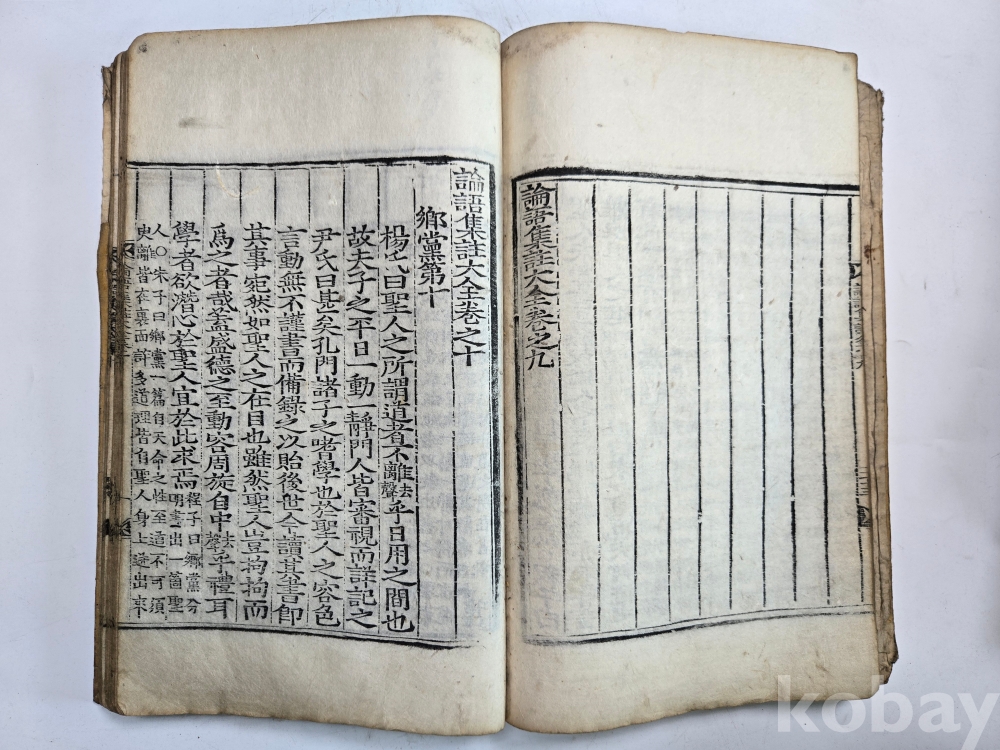 論語集註大全卷之九
論語集註大全卷之十
鄉黨第十
楊氏曰聖人之所謂道者不離去聲乎日用之間也
故夫子之平日一動一靜門人皆審視而詳記之
尹氏曰甚矣孔門諸子之嗜學也於聖人之容色
言動無不謹書而備錄之以貽後世今讀其書卽
其事宛然如聖人之在目也雖然聖人豈拘拘而
爲之者哉蓋盛德之至動容周旋自中去聲乎禮耳
學者欲潛心於聖人宜於此求焉程子曰鄉黨分明畫出一箇聖
人○朱子曰鄉黨一篇自天命之性至道不可須
臾離皆在裏面許多道理皆自聖人身上迸出來
kobay